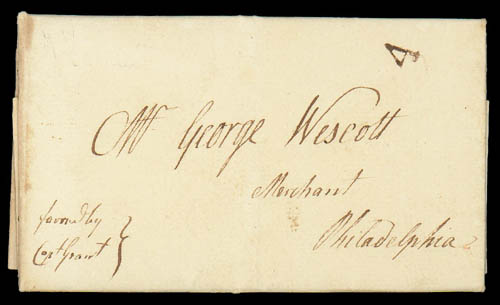 4
Mr George Wescott
Merchant
Philadelphia
favored by
Capt Grant }